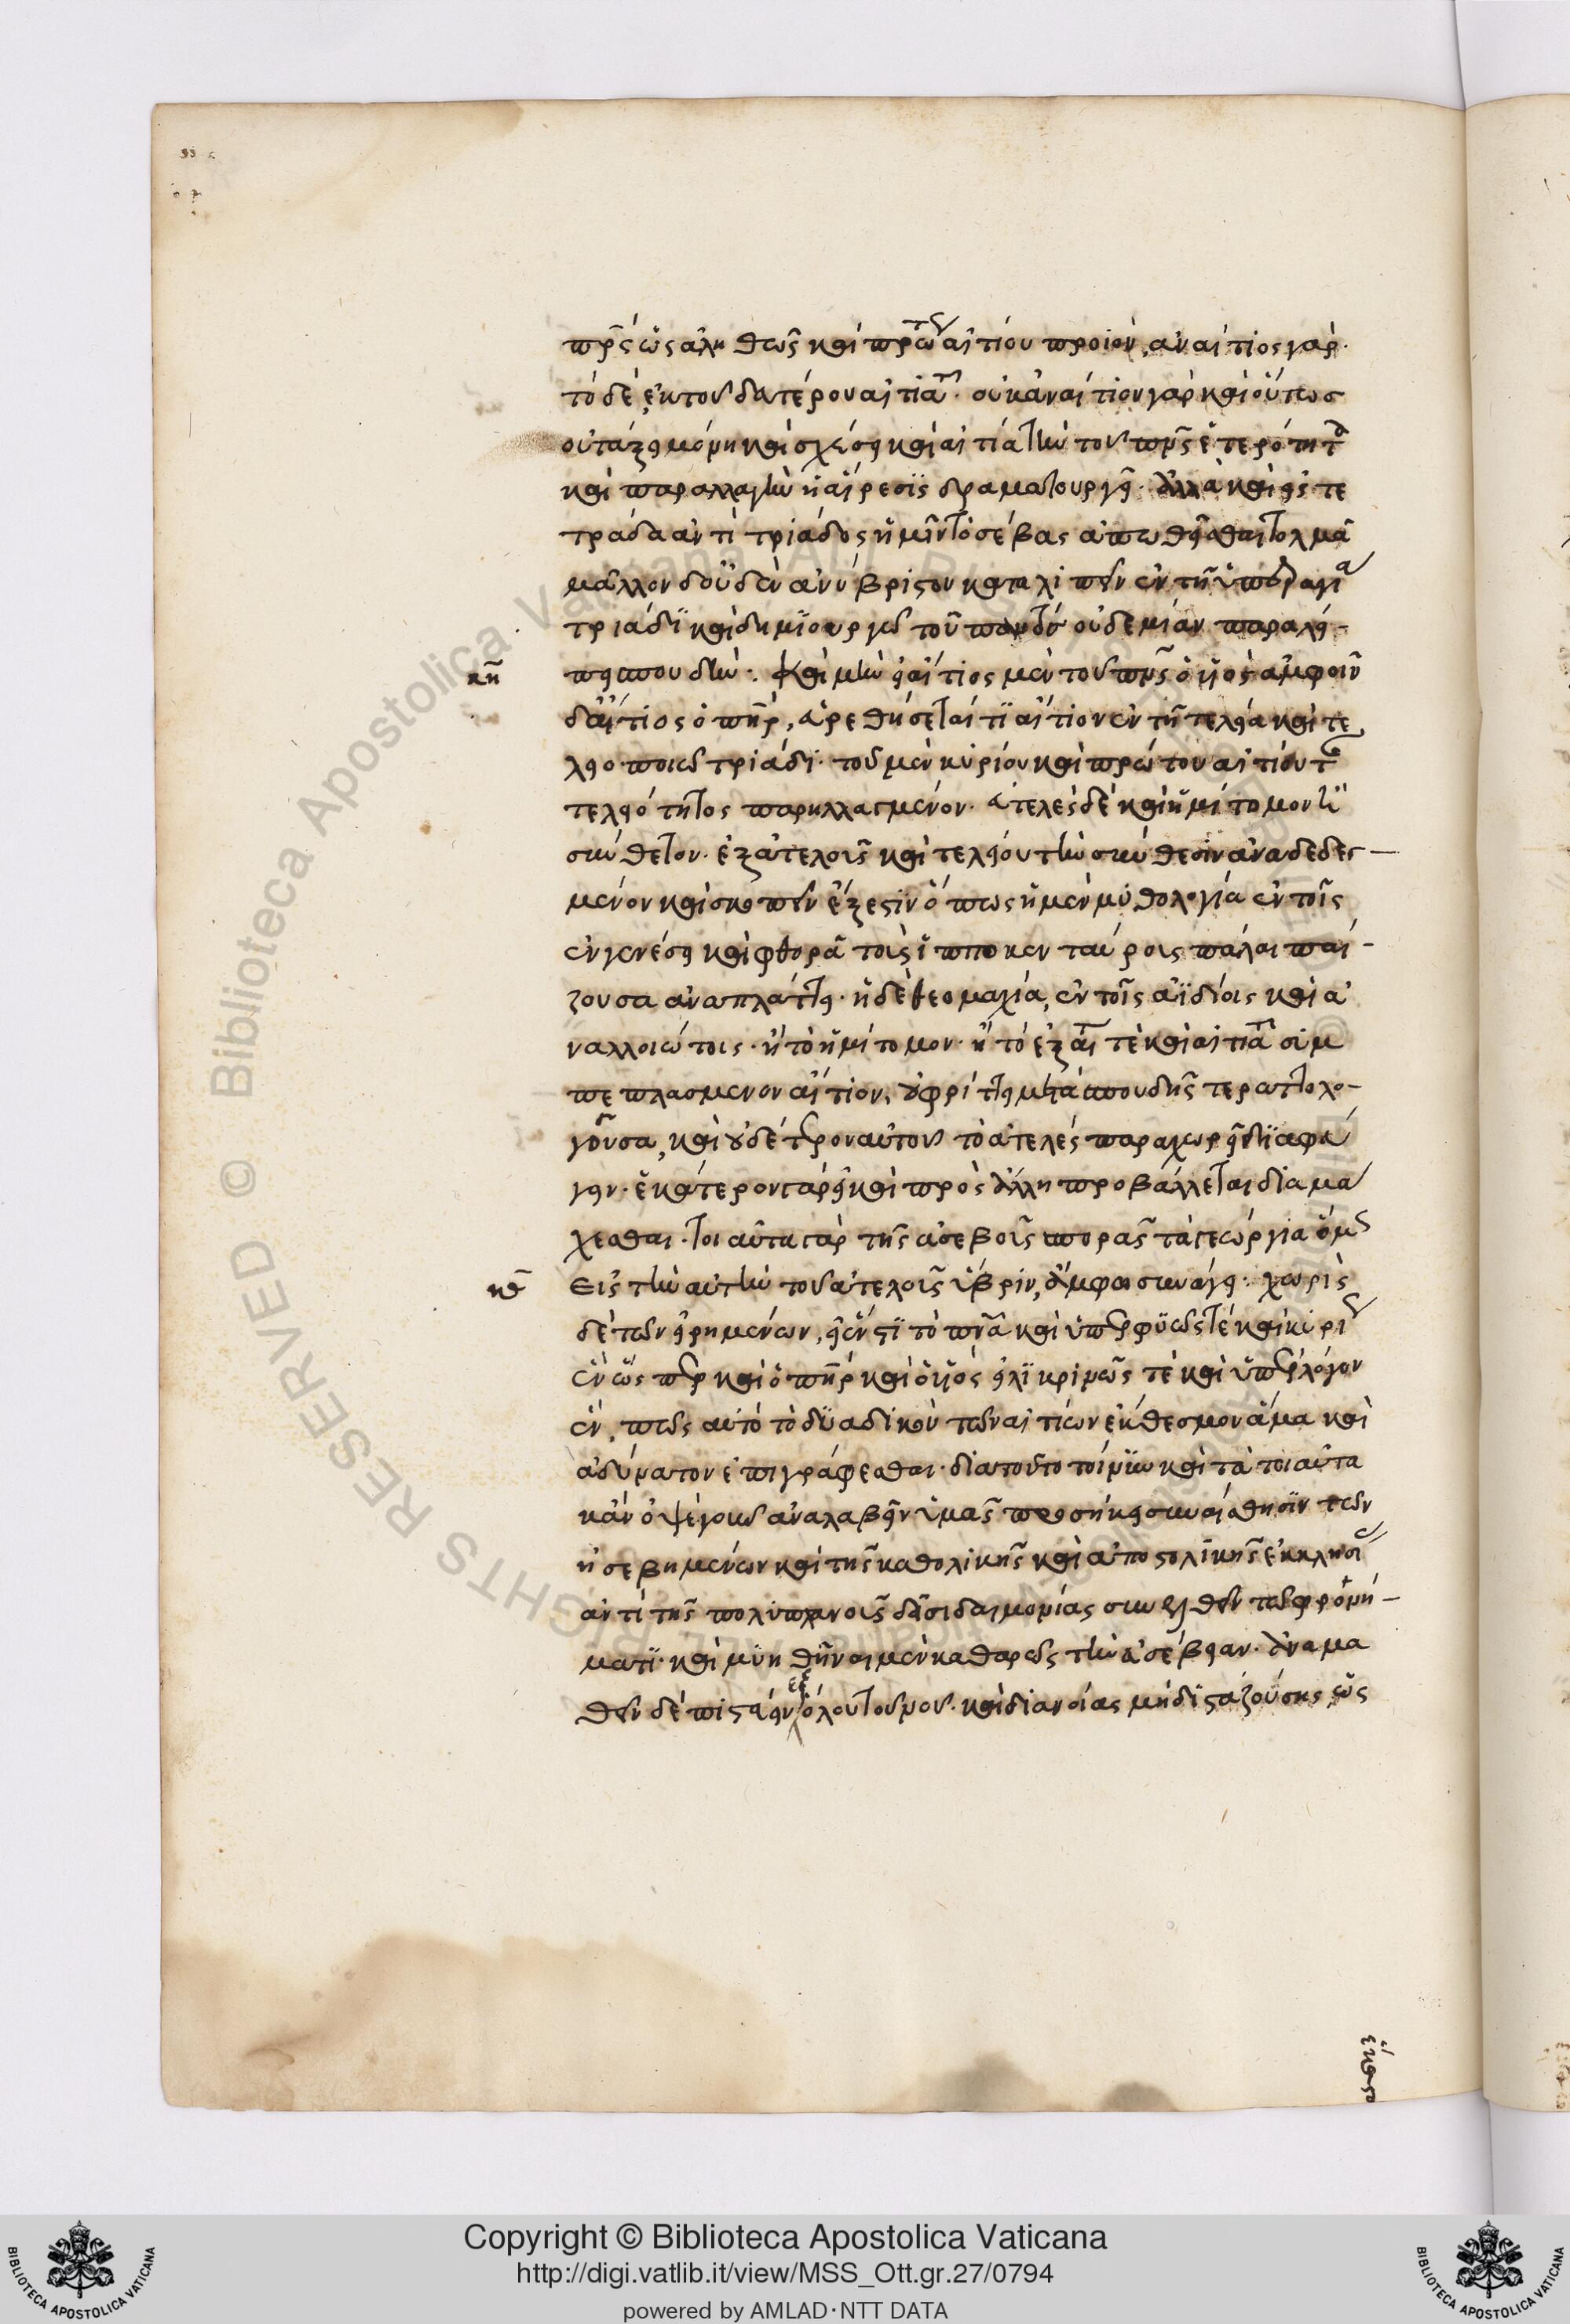 πρ̅ς ὡς ἀληθῶς καὶ πρώτου αἰτίου προϊὸν, ἀναίτιος γάρ.
τὸ δὲ, ἐκ τοῦ δευτέρου αἰτίας. οὐκ ἀναίτιον γὰρ καὶ οὕτως
οὐ τάξει μόνῃ καὶ σχέσει καὶ αἰτίᾳ τὴν τοῦ πν̅ς ἑτερότητα
καὶ παραλλαγὴν ἡ αἵρεσις δραματουργεῖ. ἀλλὰ καὶ εἰς τε
τράδα ἀντὶ τριάδος ἡμῖν τὸ σέβας ἀπωθεῖσθαι τολμᾶ
μᾶλλον δ' οὐδὲν ἀνύβριστον καταλιπεῖν ἐν τῇ ὑπεραγίᾳ
τριάδι καὶ δημιουργῷ τοῦ παντὸς οὐδεμίαν παραλεί-
πει σπουδήν. Καὶ μὴν εἰ αἴτιος μὲν τοῦ πν̅ς ὁ υἱὸς ἀμφοῖν
δ' αἴτιος ὁ πηρ̅, εὑρεθήσεταί τι αἴτιον ἐν τῇ τελείᾳ καὶ τε
λειοποιῷ τριάδι. τοῦ μὲν κυρίου καὶ πρώτου αἰτίου τῆς
τελειότητος παρηλλαγμένον. ἀτελὲς δὲ καὶ ἡμίτομον ἢ
σύνθετον. ἐξ ἀτελοῦς καὶ τελείου τὴν σύνθεσιν ἀναδεδεγ-
μένον καὶ σκοπεῖν ἔξεστιν ὅπως ἡ μὲν μυθολογία ἐν τοῖς
ἐν γενέσει καὶ φθορᾷ τοὺς ἱπποκενταύροις πάλαι παί-
ζουσα ἀναπλάττει. ἡ δὲ θεομαχία, ἐν τοῖς ἀϊδίοις καὶ ἀ
ναλλοιώτοις. ἢ τὸ ἡμίτομον. ἢ τὸ ἐξ αἰτίου τε καὶ αἰτιατοῦ συμ
πεπλασμένον αἴτιον, οὐ φρίττει μετὰ σπουδῆς τερατολο-
γοῦσα, καὶ οὐδέτερον αὐτοῦ τὸ ἀτελὲς παραχωρεῖ διαφυ
γεῖν. ἑκάτερον γὰρ εἰ καὶ πρὸς ἄλληλα προβάλλεται διαμά
χεσθαι. τοιαῦτα γὰρ τῆς ἀσεβοῦς σπορᾶς τὰ γεώργια ὅμως
Εἰς τὴν αὐτὴν τοῦ ἀτελοῦς ὕβριν, ἄμφω συνάγει. χωρὶς
δὲ τῶν εἰρημένων, εἰ ἕν ἐστι τὸ πν̅α καὶ ὑπερφυῶς τε καὶ κυρίως
ἓν ὥσπερ καὶ ὁ πηρ̅ καὶ ὁ υἱὸς εἰλικρινῶς τε καὶ ὑπὲρ λόγον
ἓν, πῶς αὐτὸ τὸ δυαδικὸν τῶν αἰτίων ἔκθεσμον ἅμα καὶ
ἀδύνατον ἐπιγράφεσθαι. διὰ τοῦτο τοίνυν καὶ τὰ τοιαῦτα
κἂν ὀψὲ γοῦν ἀναλαβεῖν ὑμᾶς προσήκει συναίσθησιν τῶν
ἠσεβημένων καὶ τῆς καθολικῆς καὶ ἀποστολικῆς ἐκκλησίας
ἀντὶ τῆς πολυπλανοῦς δεισιδαιμονίας συνελθεῖν τῷ φρονή-
ματι. καὶ μυηθῆναι μὲν καθαρῶς τὴν εὐσέβειαν. ἀναμα
θεῖν δὲ πιστεύειν ἐξ ὅλου τοῦ νοῦ. καὶ διανοίας μὴ δισταζούσης ὡς
κη̅
κθ̅